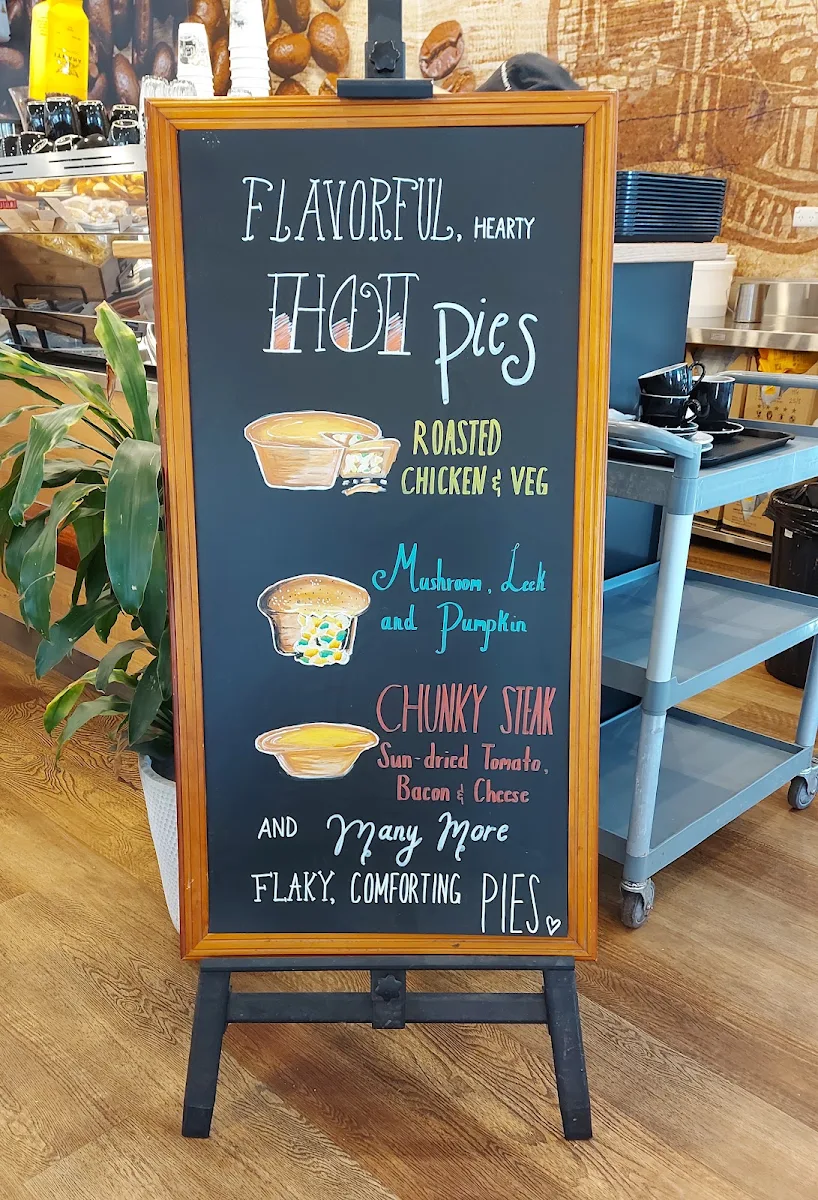 FLAVORFUL, HEARTY
HOT Pies
ROASTED
CHICKEN & VEG
Mushroom, Leek
and Pumpkin
CHUNKY STEAK
Sun-dried Tomato,
Bacon & Cheese
AND Many More
FLAKY, COMFORTING PIES